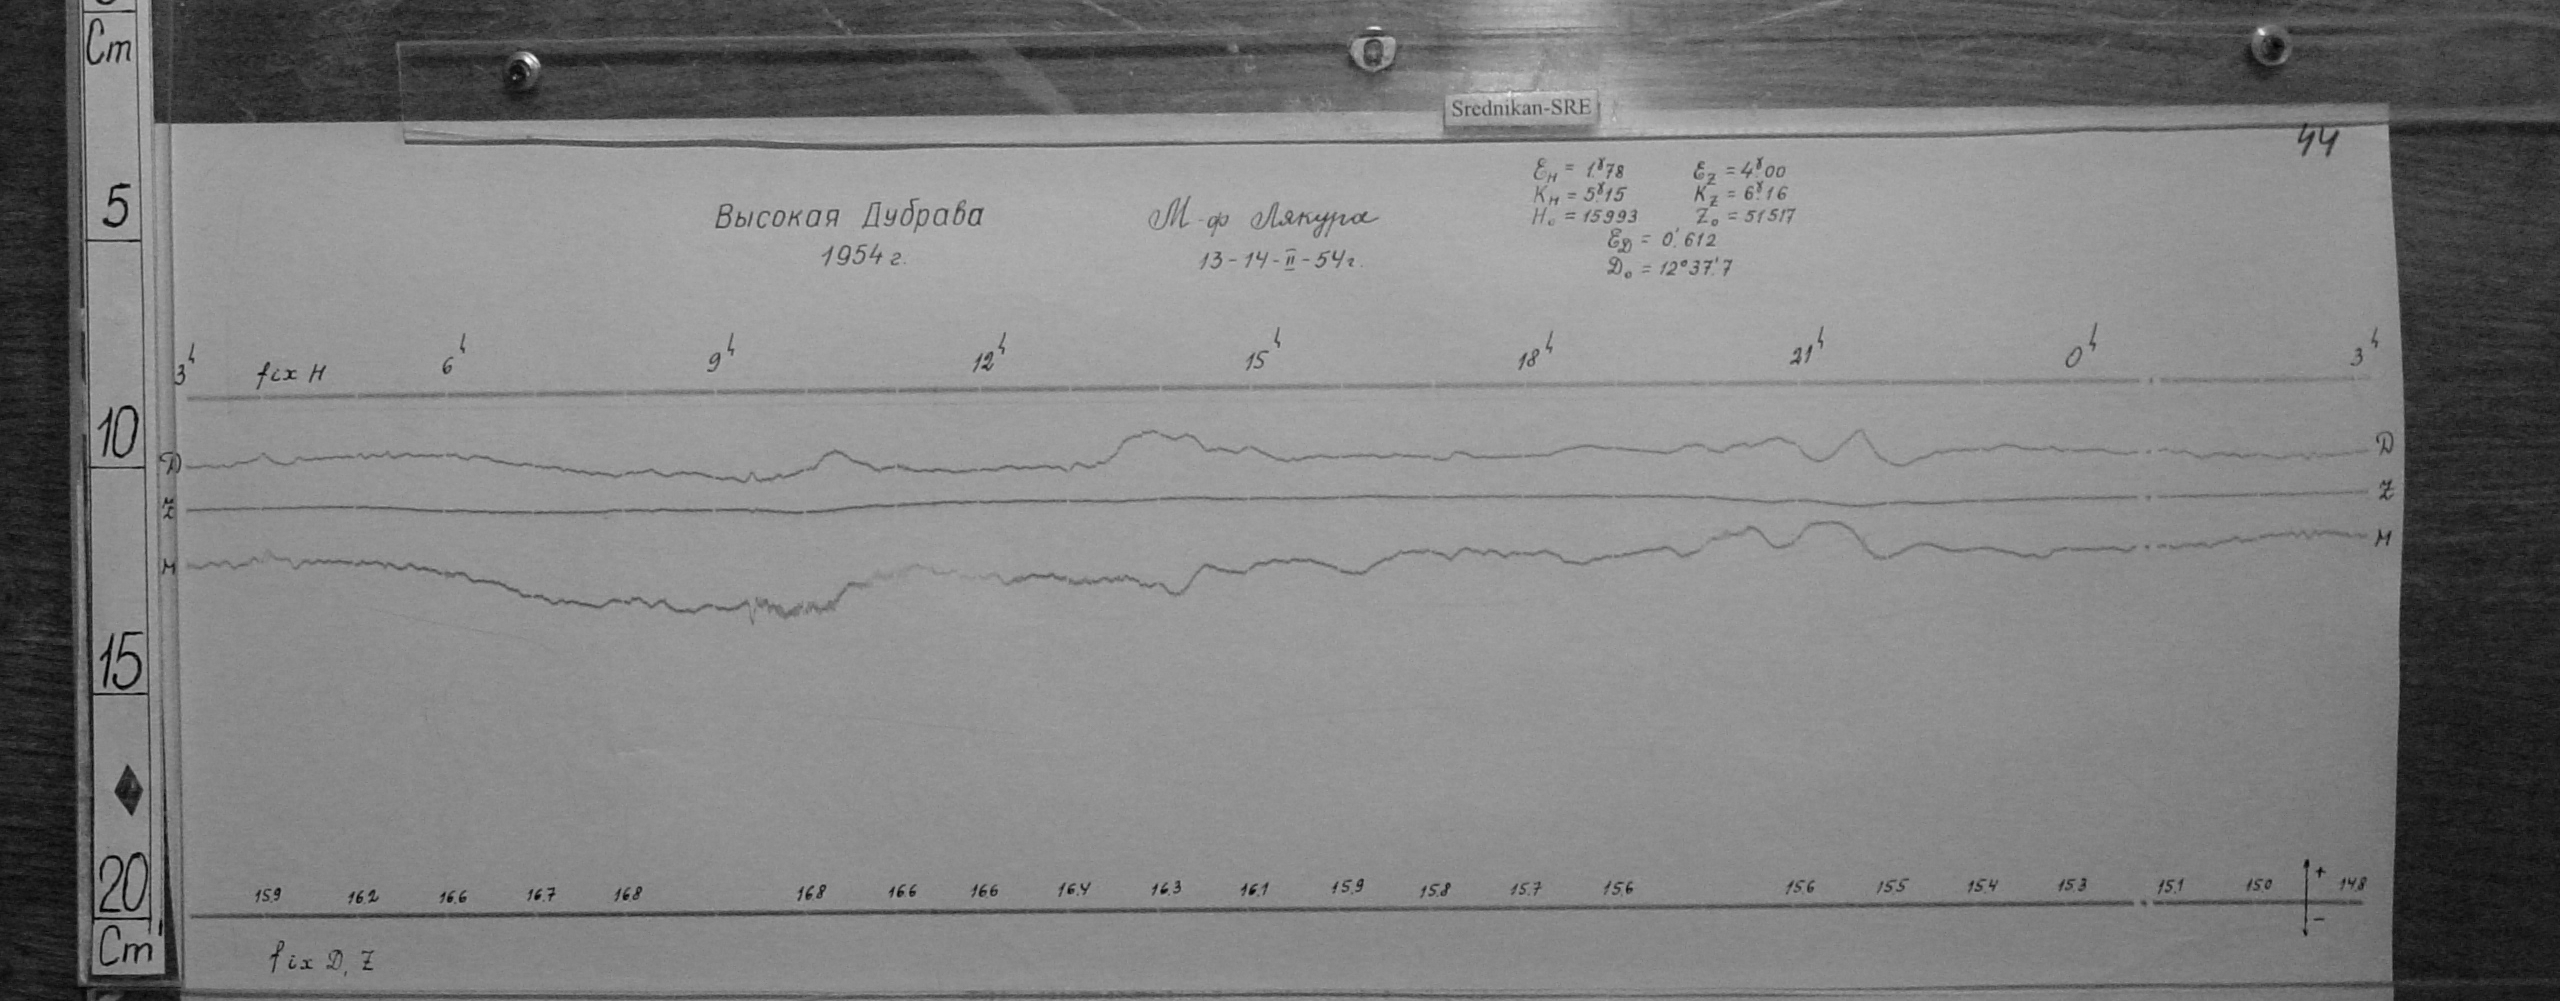 Cm
5
10
15
20
Cm
Srednikan-SRE
44
Высокая Дубрава
1954 г.
М-ф Лякура
13-14-II-54г.
ℰH = 1.ˠ78 ℰZ = 4.ˠ00
KH = 5.ˠ15 KZ = 6.ˠ16
H₀ = 15993 Z₀ = 51517
ℰD = 0.′612
D₀ = 12°37.′7
3ʰ 6ʰ 9ʰ 12ʰ 15ʰ 18ʰ 21ʰ 0ʰ 3ʰ
fix H
D D
Z Z
H H
15.9 16.2 16.6 16.7 16.8 16.8 16.6 16.6 16.4 16.3 16.1 15.9 15.8 15.7 15.6 15.6 15.5 15.4 15.3 15.1 15.0 14.8
+
-
fix D, Z